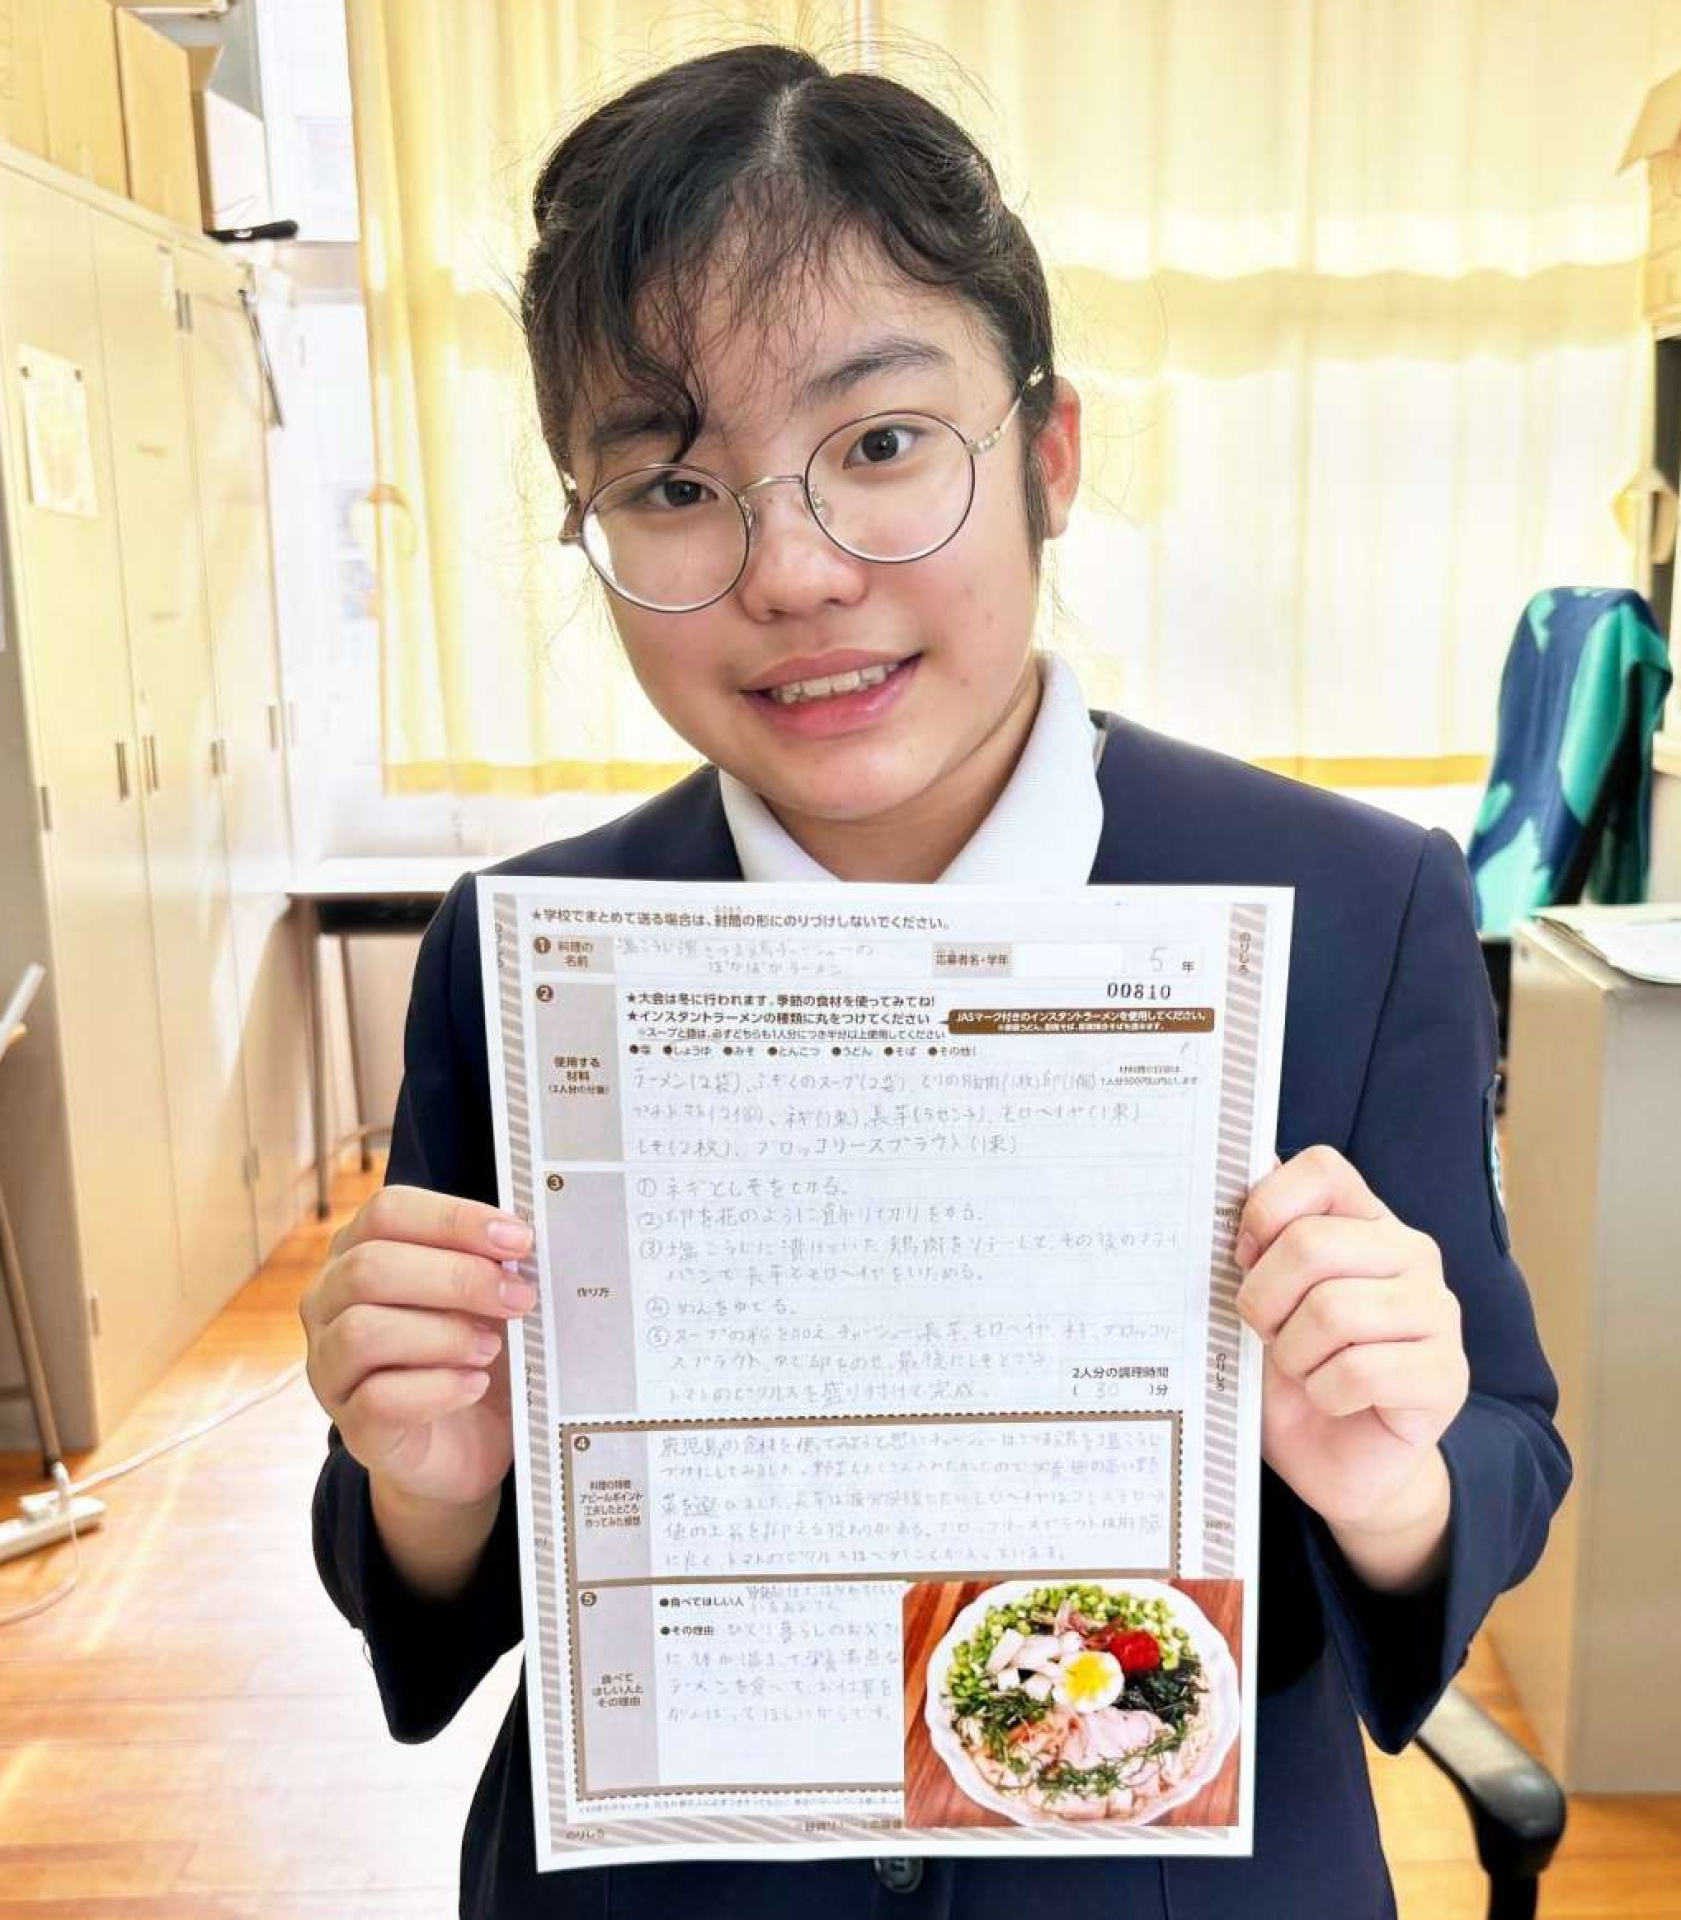 ★学校でまとめて送る場合は、封筒の形にのりづけしないでください。
❶ 料理の名前
塩こうじ漬さつま鶏チャーシューの
ぽかぽかラーメン
応募者名・学年 5 年
00810
❷ ★大会は冬に行われます。季節の食材を使ってみてね!
★インスタントラーメンの種類に丸をつけてください
JASマーク付きのインスタントラーメンを使用してください。
※スープと麺は、必ずどちらも1人分につき半分以上使用してください
●塩 ●しょうゆ ●みそ ●とんこつ ●うどん ●そば ●その他(
使用する
材料
(2人分の分量)
ラーメン(2袋)、ふぞくのスープ(2袋)、とりの胸肉(1枚)卵(1個)
材料費の目安は
1人分500円以内とします
プチトマト(2個)、ネギ(1束)、長芋(5センチ)、モロヘイヤ(1束)
しそ(2枚)、ブロッコリースプラウト(1束)
❸ 作り方
① ネギとしそを切る。
② 卵を花のように飾り切りをする。
③ 塩こうじに漬けていた鶏肉をソテーして、その後のフライ
パンで長芋とモロヘイヤをいためる。
④ めんをゆでる。
⑤ スープの粉を加え、チャーシュー、長芋、モロヘイヤ、ネギ、ブロッコリー
スプラウト、ゆで卵をのせ、最後にしそとプチ
トマトのピクルスを盛り付けて完成。
2人分の調理時間
( 30 )分
❹ 料理の特徴
アピールポイント
工夫したところ
作ってみた感想
鹿児島の食材を使ってみようと思いチャーシューはさつま鶏を塩こうじ
づけにしてみました。野菜もたくさん入れたかったので栄養価の高い野
菜を選びました。長芋は疲労回復に良いモロヘイヤはコレステロール
値の上昇を抑える役割がある。ブロッコリースプラウトは肝臓
に良く、トマトのピクルスは
❺ 食べて
ほしい人と
その理由
●食べてほしい人
お父さん
●その理由 ひとり暮らしのお父さん
に体が温まって栄養満点な
ラーメンを食べて、お仕事を
がんばってほしいからです。
のりしろ
のりしろ
のりしろ